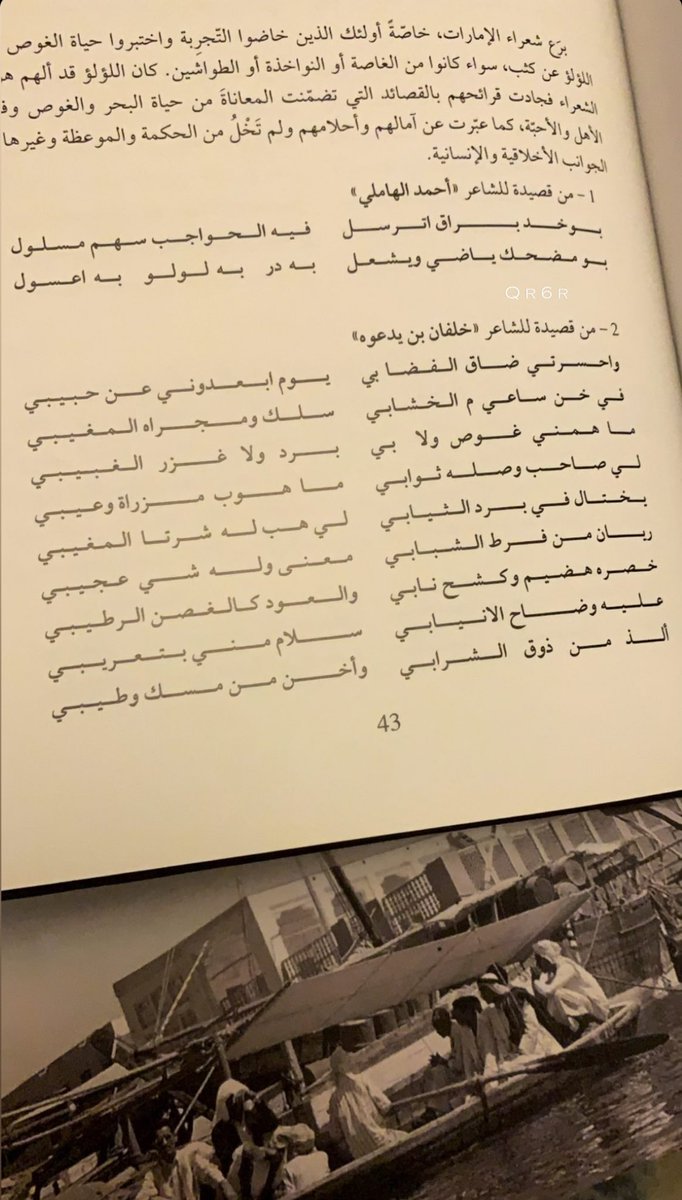 برَع شعراء الإمارات، خاصّةً أولئك الذين خاضوا التّجرِبة واختبروا حياة الغوص
اللؤلؤ عن كثب، سواء كانوا من الغاصة أو النواخذة أو الطواشين. كان اللؤلؤ قد ألهم
الشعراء فجادت قرائحهم بالقصائد التي تضمّنت المعاناةَ من حياة البحر والغوص
الأهل والأحبّة، كما عبّرت عن آمالهم وأحلامهم ولم تَخْلُ من الحكمة والموعظة وغيرها
الجوانب الأخلاقية والإنسانية.
1 – من قصيدة للشاعر «أحمد الهاملي»
بوخد براق اترسل فيه الحواجب سهم مسلول
بو مضحك ياضي ويشعل به در به لولو به اعسول
QR6R
2 – من قصيدة للشاعر «خلفان بن يدعوه»
واحسرتي ضاق الفضا بي يوم ابعدوني عن حبيبي
في خن ساعي م الخشابي سلك ومجراه المغيبي
ما همني غوص ولا بي برد ولا غزر الغبيبي
لي صاحب وصله ثوابي ما هوب مزراة وعيبي
يختال في برد الثيابي لي هب له شرتا المغيبي
ريان من فرط الشبابي معنى وله شي عجيبي
خصره هضيم وكشح نابي والعود كالغصن الرطيبي
عليه وضاح الانيابي سلام مني بتعريبي
ألذ من ذوق الشرابي وأخن من مسك وطيبي
43